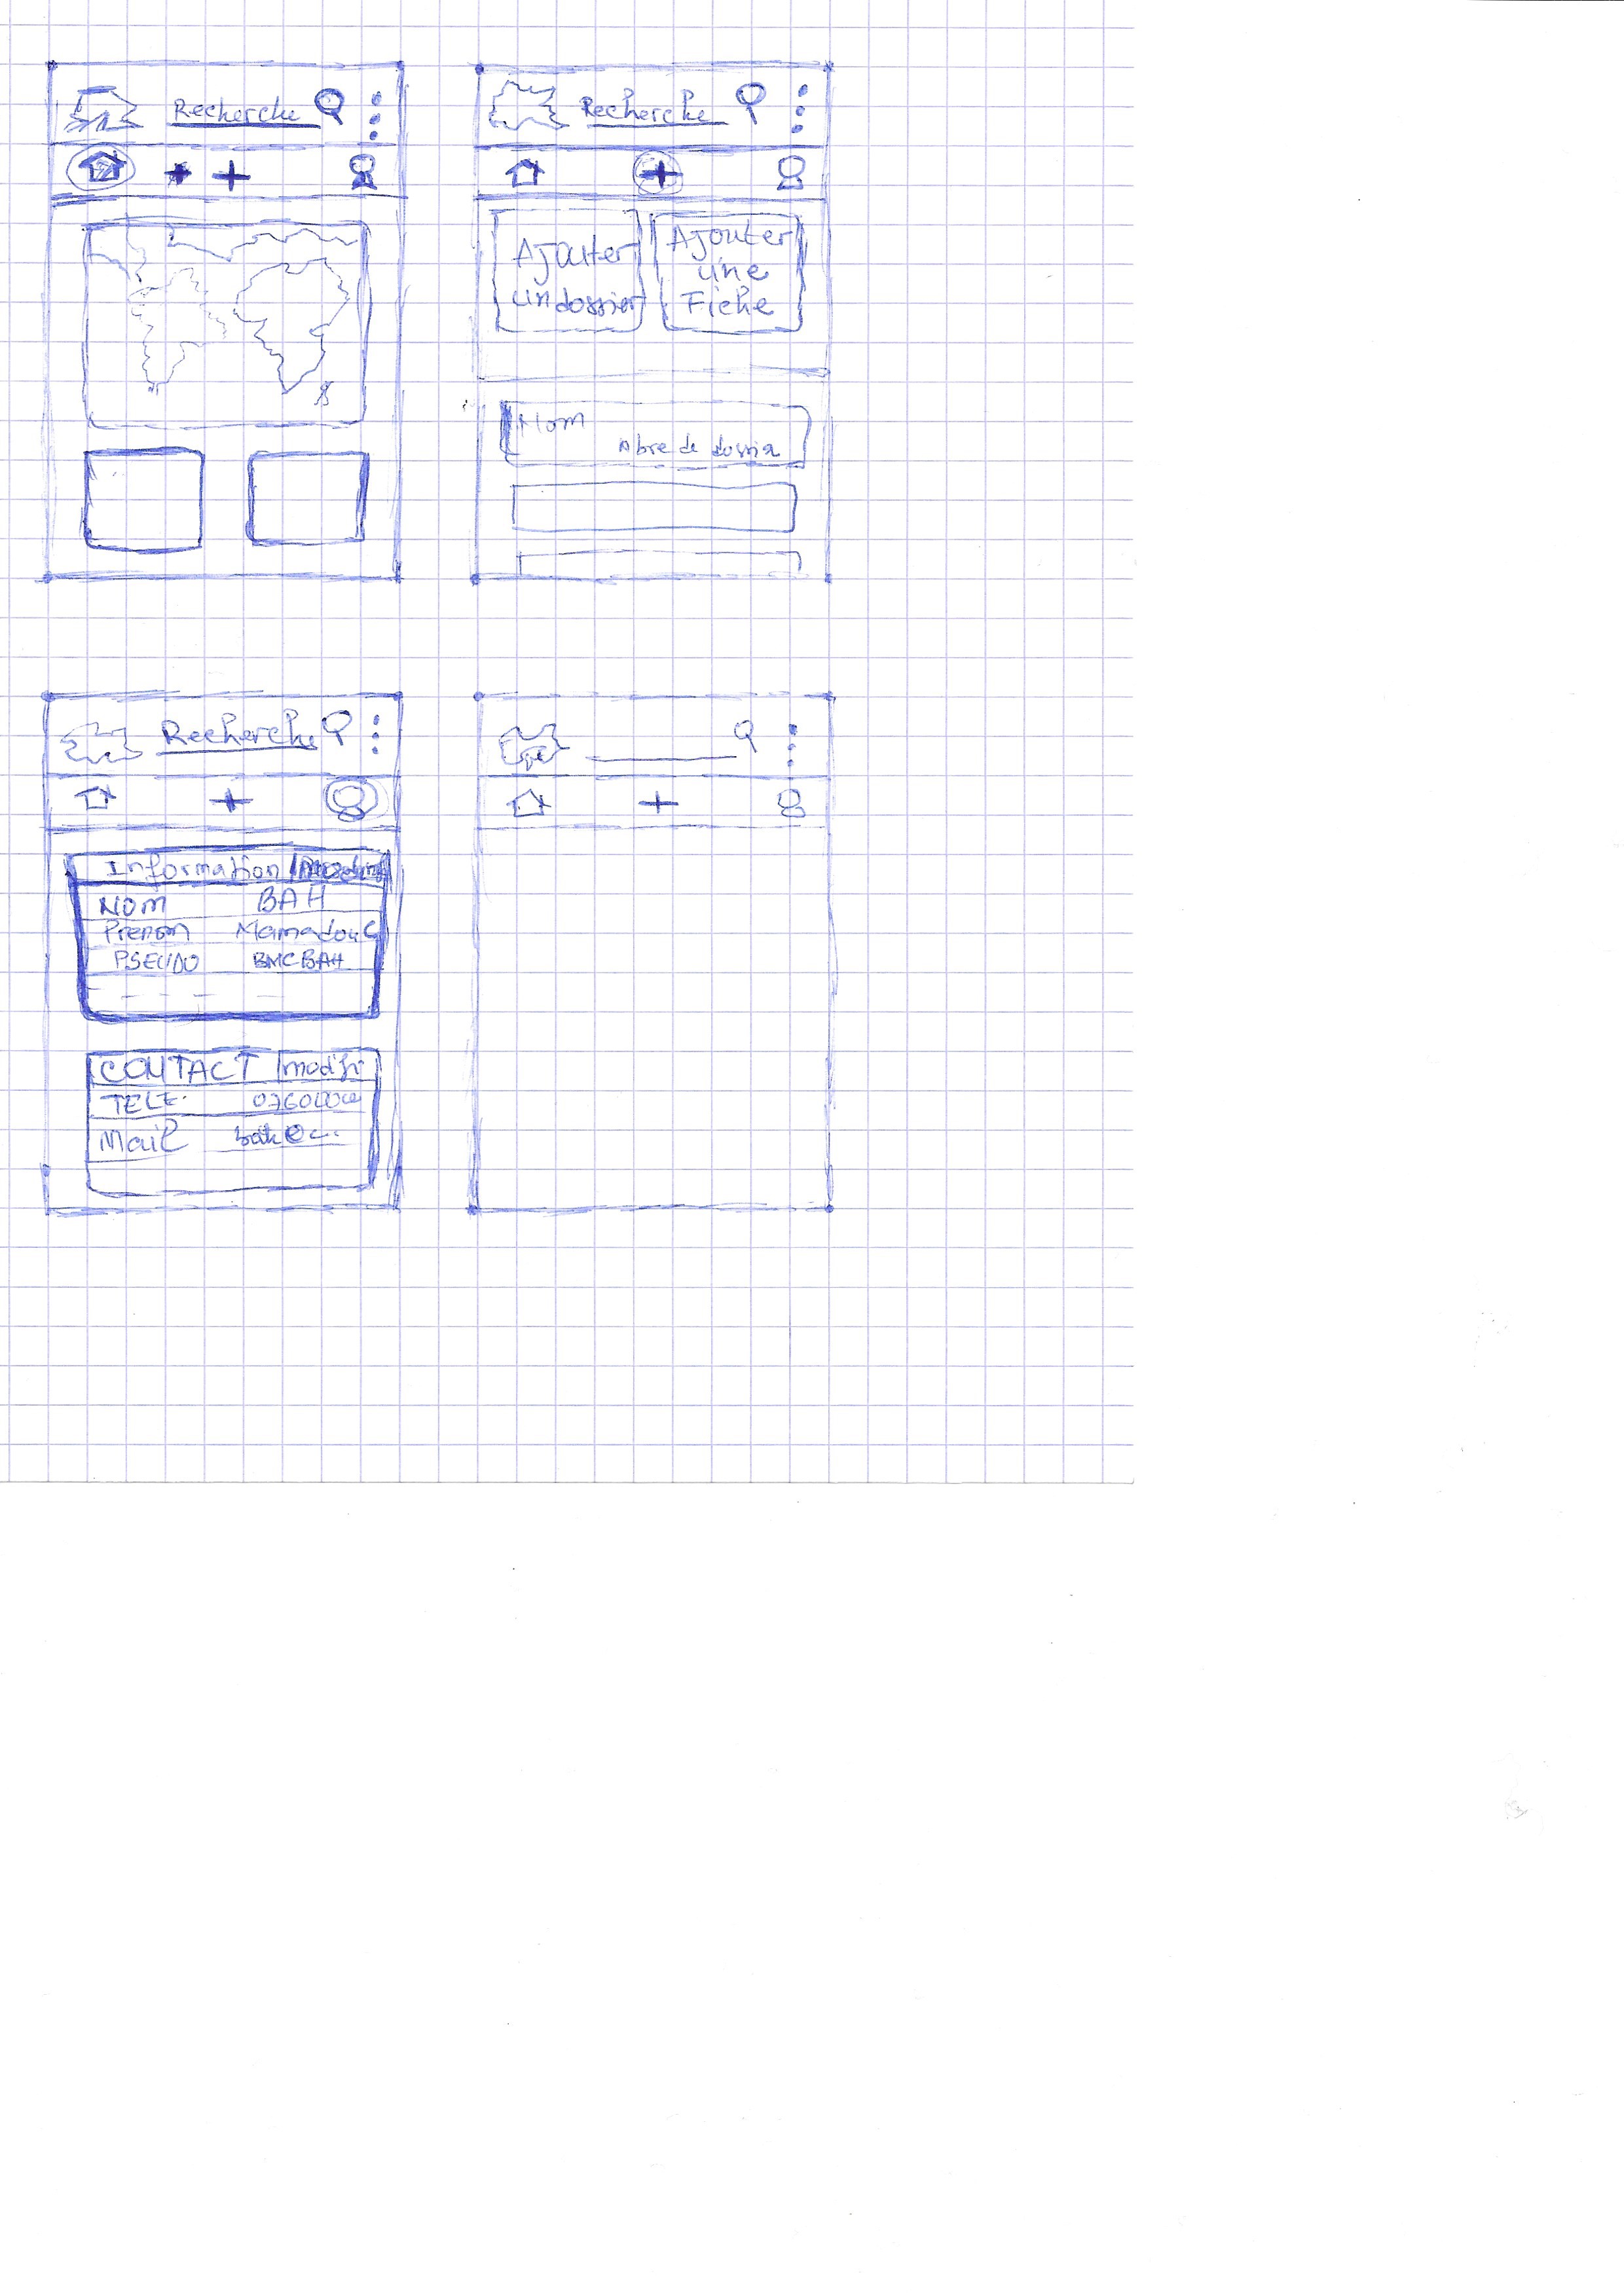 Recherche
Recherche
Ajouter
un dossier
Ajouter
une
Fiche
Nom
Nbre de dossier
Recherche
Information
NOM BAH
Prenom Mamadou C
PSEUDO BMCBAH
CONTACT modifi
TELE.
Mail